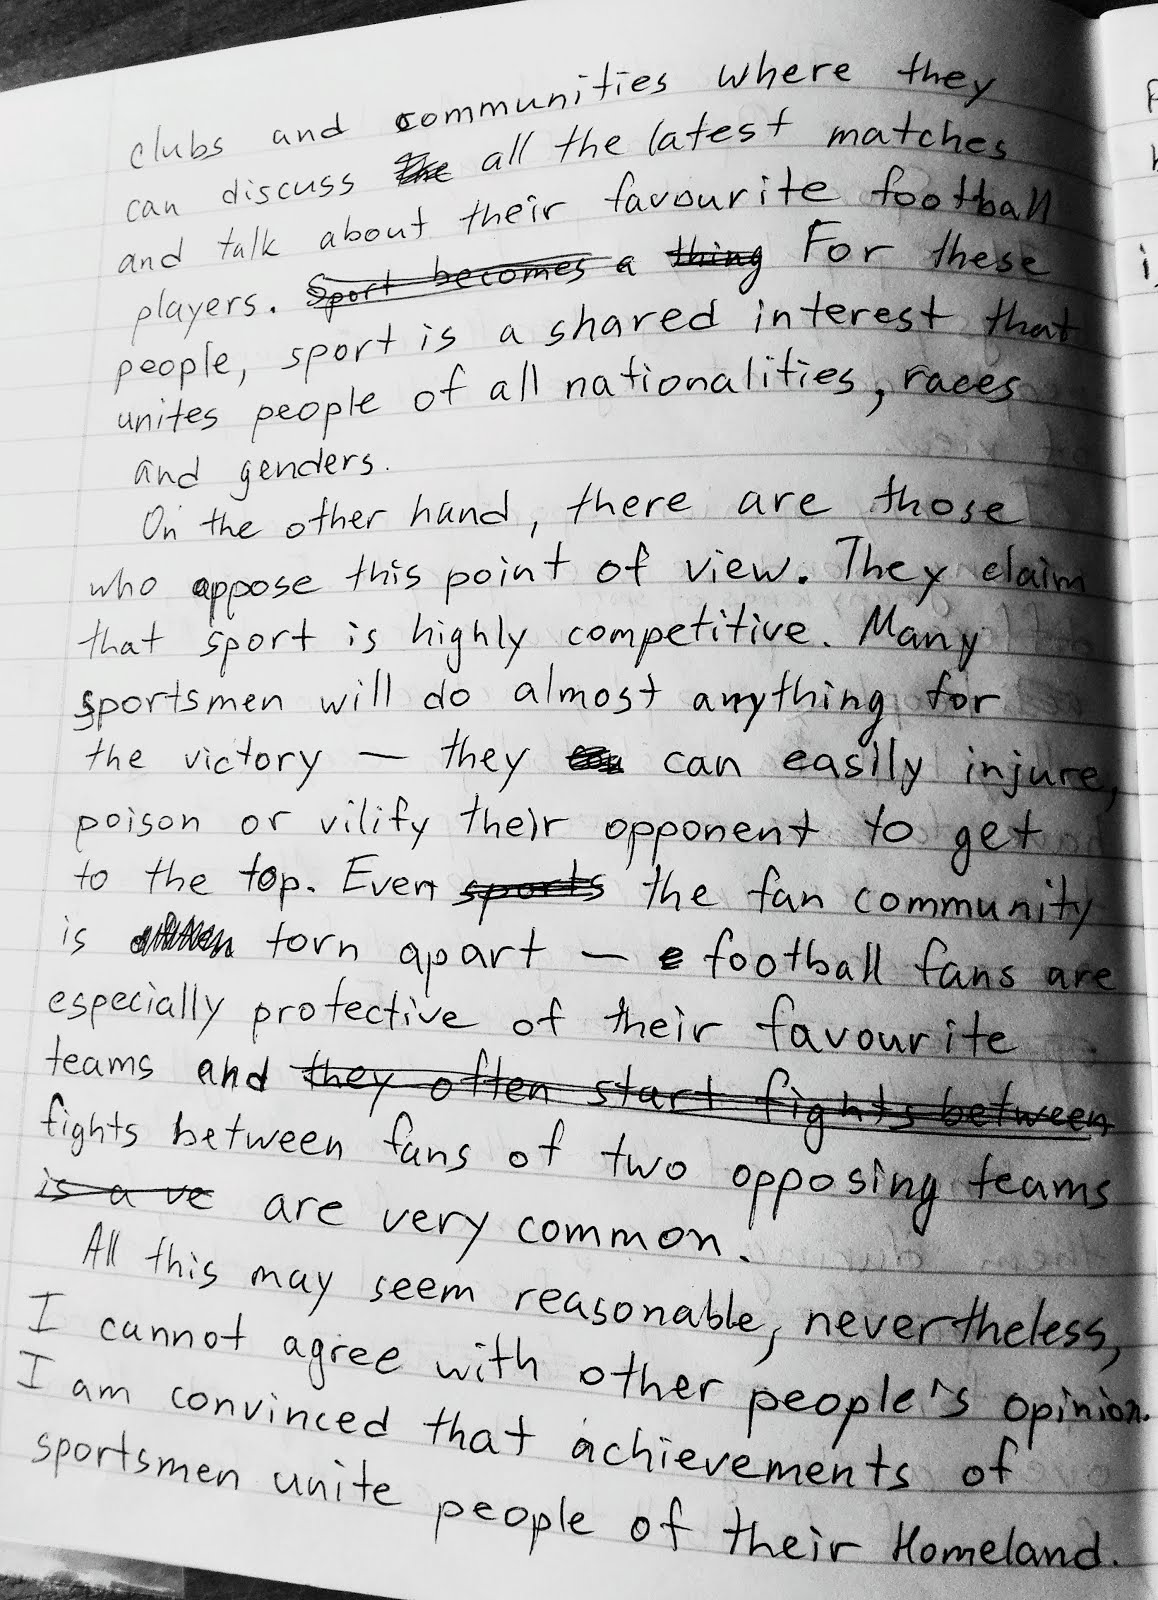 clubs and communities where they
can discuss the all the latest matches
and talk about their favourite football
players. Sport becomes a thing For these
people, sport is a shared interest that
unites people of all nationalities, races
and genders.
On the other hand, there are those
who oppose this point of view. They claim
that sport is highly competitive. Many
sportsmen will do almost anything for
the victory — they can easily injure,
poison or vilify their opponent to get
to the top. Even sports the fan community
is torn apart — football fans are
especially protective of their favourite
teams and they often start fights between
fights between fans of two opposing teams
is a ve are very common.
All this may seem reasonable, nevertheless,
I cannot agree with other people's opinion.
I am convinced that achievements of
sportsmen unite people of their Homeland.